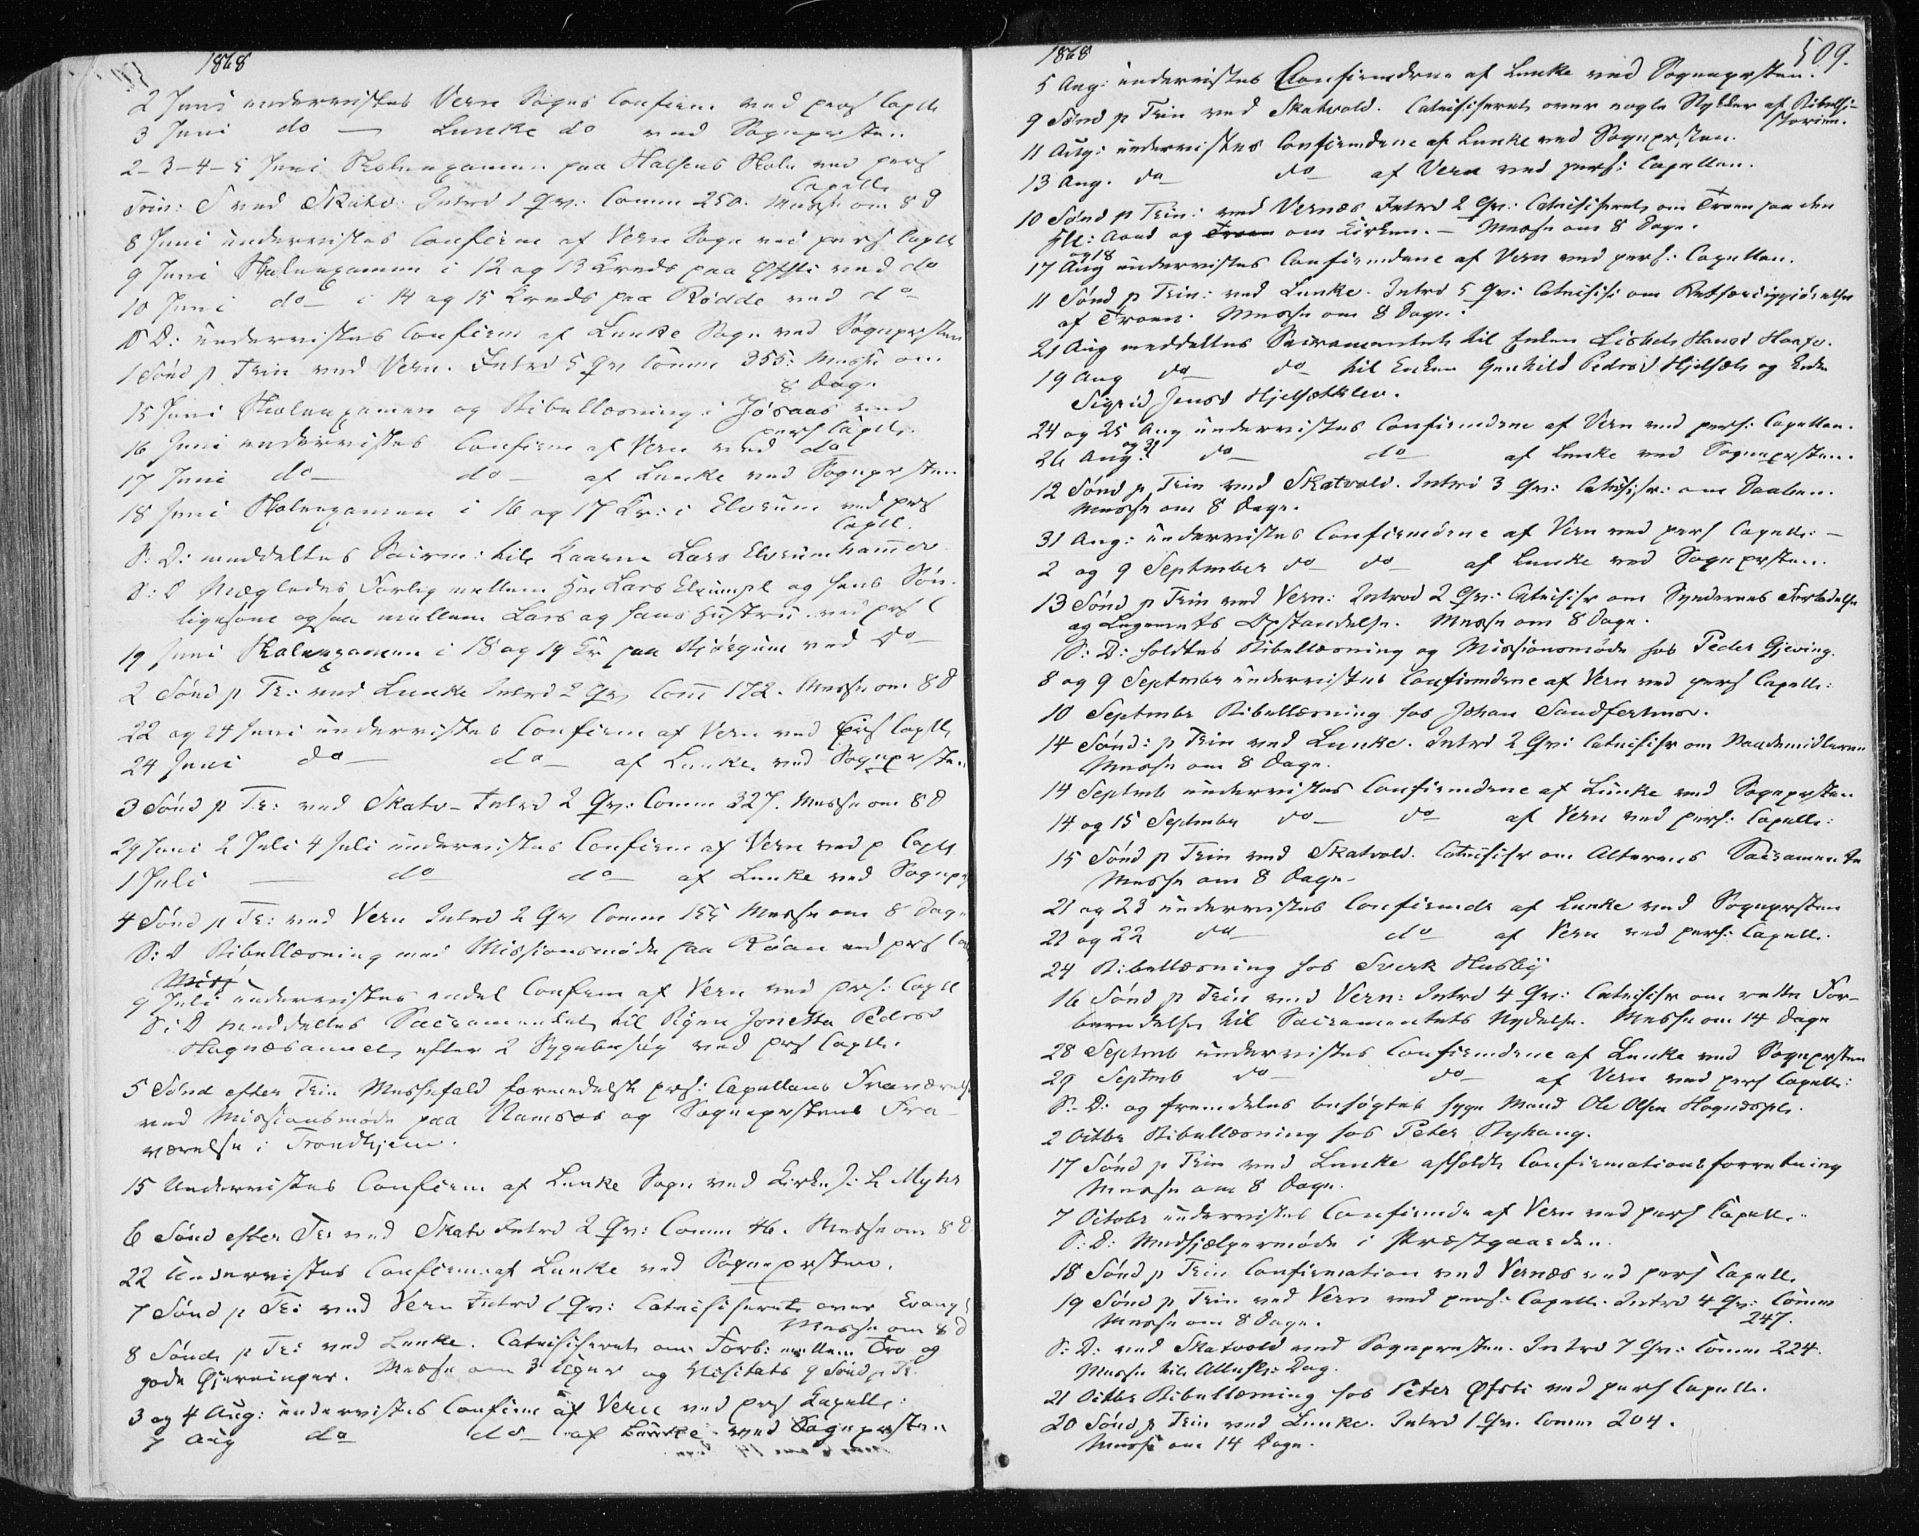 1868
2 Juni undervistes Vern Sogns Confirm. ved pers Capell
3 Juni do — Lunke do ved Sogneprsten
2-3-4-5 Juni Skoleexamen paa Halsens Skole ved pers
Capell.
Trin: S ved Skatv: Introd 1 Qv: Comm 250. Messe om 8 D
8 Juni undervistes Confirm af Vern Sogn ved pers Capell
9 Juni Skoleexamen i 12 og 13 Kreds paa Øfsti ved do
10 Juni do — i 14 og 15 Kreds paa Rødde ved do
S D: undervistes Confirm af Lunke Sogn ved Sogneprsten
1 Sönd p Trin ved Vern. Introd 5 Qv Comm 355: Messe om
8 Dage
15 Juni Skoleexamen og Bibellæsning i Jøsaas ved
pers Capell.
16 Juni undervistes Confirm af Vern ved do
17 Juni do — do — af Lunke ved Sogneprsten
18 Juni Skoleexamen i 16 og 17 Kr: i Elvrum ved pers
Capell.
S: D: meddeltes Sacrm: til Kaarm Lars Elvrumhammer
S: D Mægledes Forlig mellem Lars Elvrumpl og hans Søn
ligesom ogsaa mellem Lars og hans Hustru ved prs C
19 Juni Skoleexamen i 18 og 19 Kr paa Bjørgum ved do
2 Sönd p Tr: ved Lunke Introd 2 Qv Comm 172. Messe om 8 D
22 og 24 Juni undervistes Confirm af Vern ved pers Capell
24 Juni do — do — af Lunke ved Sogneprsten
3 Sönd p Tr: ved Skatv — Introd 2 Qv: Comm 327. Messe om 8 D
29 Juni 2 Juli 4 Juli undervistes Confirm af Vern ved p Capll
1 Juli — do do — af Lunke ved Sognepr
4 Sönd p Tr: ved Vern Introd 2 Qv Comm 155 Messe om 8 Dage
S: D Bibellæsning med Missionsmøde paa Røan ved prs Cap
9 Juli undervistes endel Confirm af Vern ved prs: Capll
S: D meddeltes Sacramentet til Pigen Jonetta Pedersd
efter 2 Sygebesøg ved prs Capll.
5 Sönd efter Trin Messefald formedelst prs: Capellans Fraværelse
ved Missionsmøde paa Namsos og Sogneprstens Fra-
værelse i Trondhjem.
15 Undervistes Confirm af Lunke Sogn ved Kirkes: L Myhr
6 Sönd efter Tr: ved Skatv Introd 2 Qv: Comm 46. Messe om 8 D
22 Undervistes Confirm af Lunke ved Sogneprsten.
7 Sönd p Tr: ved Vern Introd 1 Qv: Catechiseret over Evang
Messe om 8 D
8 Sönd p Tr: ved Lunke. Catechiseret om Forb: mellem Tro og
gode Gjerninger. Messe om 3 Uger og Visitats 9 Sönd p Tr.
3 og 4 Aug: undervistes Confirm af Vern ved prs Capell:
7 Aug do do — af Lunke ved Sogneprsten
1868 509.
5 Aug: undervistes Confirmderne af Lunke ved Sogneprsten.
9 Sönd p Trin ved Skatvold. Catechiseret over nogle Stykker af Bibelhi-
storien.
11 Aug: undervistes Confirmdene af Lunke ved Sogneprsten.
13 Aug. do — do — af Vern ved pers: Capellan.
10 Sönd p Trin: ved Vernæs Introd 2 Qv: Catechiseret om Troen paa den
Hll: Aand og Troen om Kirken. — Messe om 8 Dage.
og 18
17 Aug undervistes Confirmdene af Vern ved pers: Capellan.
11 Sönd p Trin: ved Lunke. Introd 5 Qv: Catechisi om Retfærdiggjörelse
af Troen. Messe om 8 Dage.
21 Aug meddeltes Sacramentet til Enken Lisbet Hansd
19 Aug do — do — til Enken Gunhild Pedersd Hjelset og Enke
Sigrid Jensd
24 og 25 Aug undervistes Confirmdene af Vern ved pers: Capellan.
26 Aug. do — do — af Lunke ved Sogneprsten.
12 Sönd p Trin ved Skatvold. Introd 3 Qv: Catechisr: om Daaben.
Messe om 8 Dage.
31 Aug: undervistes Confirmdene af Vern ved pers Capell: —
2 og 9 September do — do — af Lunke ved Sogneprsten.
13 Sönd p Trin ved Vern: Introd 2 Qv: Catechisr om Syndernes Forladelse
og Legemets Opstandelse. Messe om 8 Dage.
S: D: holdtes Bibellæsning og Missionsmøde hos Peder Gjeving.
8 og 9 Septmbr undervistes Confirmdene af Vern ved pers Capell:
10 Septmbr Bibellæsning hos Johan Sandfermo.
14 Sönd: p Trin ved Lunke. Introd 2 Qv: Catechisr om Naademidlerne
Messe om 8 Dage.
14 Septmb undervistes Confirmdene af Lunke ved Sogneprsten
14 og 15 Septmbr do — do — af Vern ved pers: Capell:
15 Sönd p Trin ved Skatvold. Catechisr om Alterens Sacramente
Messe om 8 Dage.
21 og 23 undervistes Confirmde af Lunke ved Sogneprsten
21 og 22 do — do — af Vern ved pers: Capell.
24 Bibellæsning hos Sverk Husby
16 Sönd p Trin ved Vern: Introd 4 Qv: Catechisr om rette For-
beredelse til Sacramentets Nydelse. Messe om 14 Dage
28 Septmb undervistes Confirmdene af Lunke ved Sogneprsten
29 Septmb do — do — af Vern ved pers Capell:
S: D: og fremdeles besøgtes syge Mand Ole Olsen
2 Octbr Bibellæsning hos Peter Ryhaug.
17 Sönd p Trin ved Lunke afholdt Confirmationsforretning
Messe om 8 Dage.
7 Octobr undervistes Confirmde af Vern ved pers Capell.
S: D: Medhjælpermøde i Præstgaarden.
18 Sönd p Trin Confirmation ved Vernæs ved pers Capell.
19 Sönd p Trin ved Vern ved pers: Capell. Introd 4 Qv: Comm
Messe om 8 Dage. 247.
S: D: ved Skatvold ved Sogneprsten. Introd 7 Qv: Comm 224.
Messe til Allehlg: Dag.
21 Octbr Bibellæsning hos Peter Øfsti ved pers Capell.
20 Sönd p Trin ved Lunke. Introd 1 Qv. Comm 204.
Messe om 14 Dage.